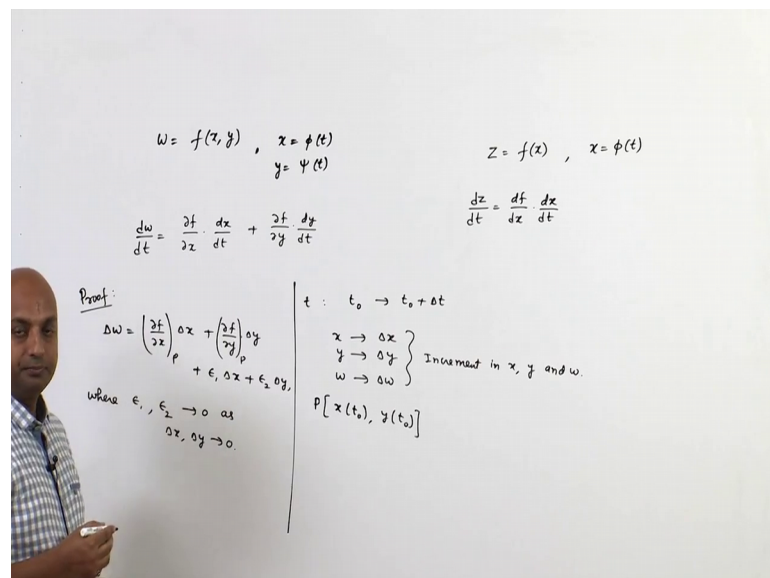 W = f(x, y) , x = φ(t)
y = ψ(t)
dw/dt = ∂f/∂x · dx/dt + ∂f/∂y · dy/dt
Z = f(x) , x = φ(t)
dz/dt = df/dx · dx/dt
Proof:
Δw = (∂f/∂x)_P Δx + (∂f/∂y)_P Δy
+ ε₁ Δx + ε₂ Δy,
where ε₁, ε₂ → 0 as
Δx, Δy → 0.
t : t₀ → t₀ + Δt
x → Δx
y → Δy } Increment in x, y and w.
w → Δw
P[ x(t₀), y(t₀) ]